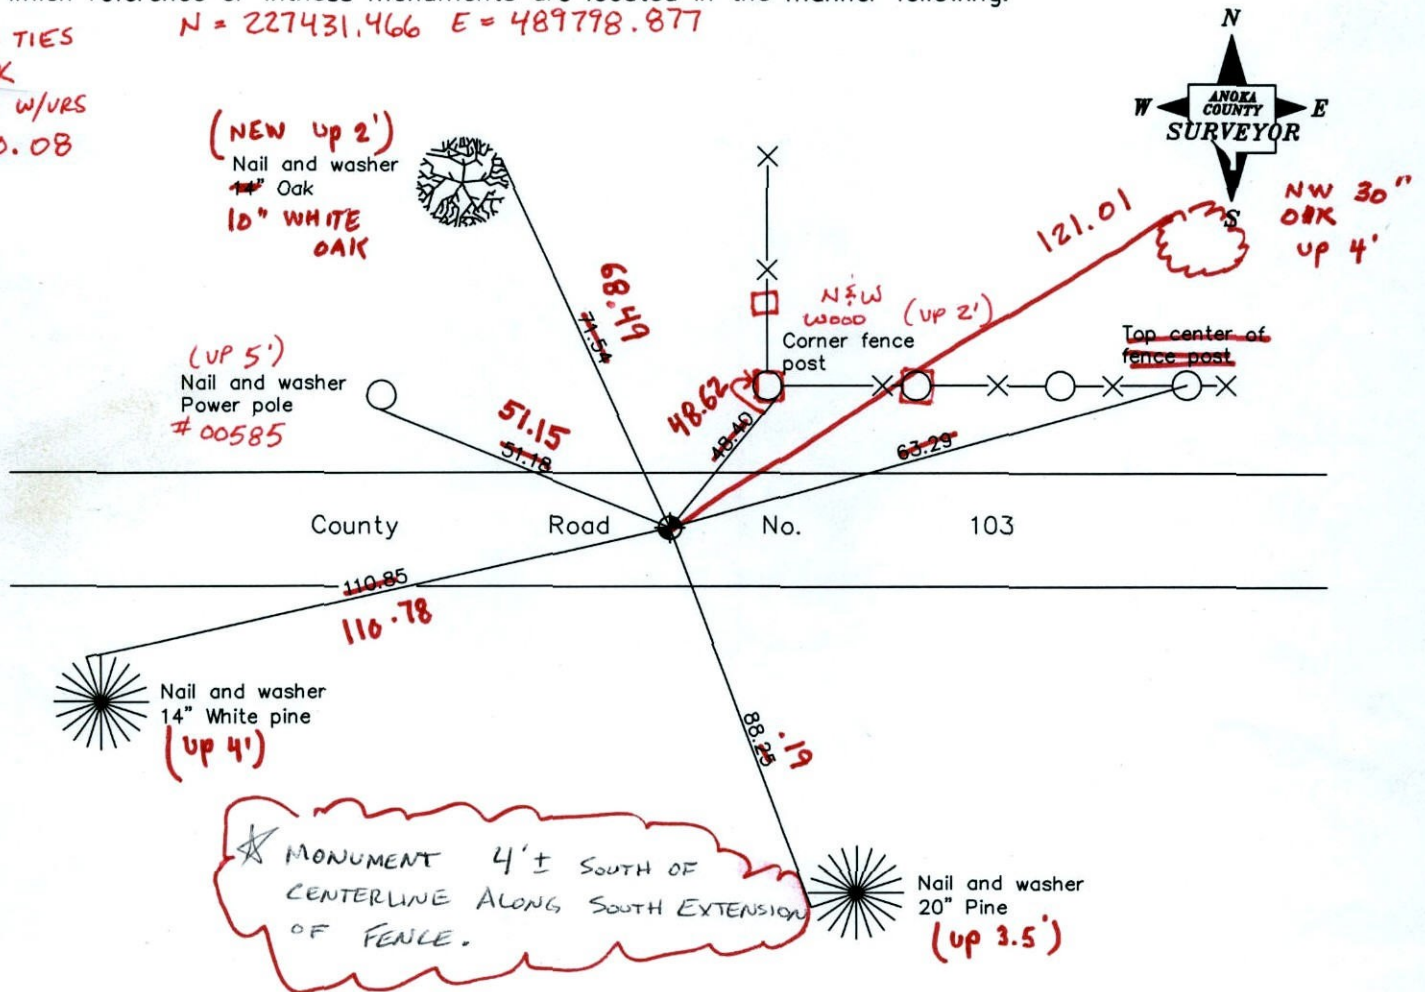 which reference or witness monuments are located in the manner following:
TIES
N = 227431.466 E = 489798.877
K
W/VRS
0.08
N
W
ANOKA
COUNTY
E
SURVEYOR
S
(NEW UP 2')
Nail and washer
14" Oak
10" WHITE
OAK
121.01
NW 30"
OAK
UP 4'
68.49
71.54
N&W
WOOD (UP 2')
Corner fence
post
Top center of
fence post
(UP 5')
Nail and washer
Power pole
# 00585
51.15
51.18
48.62
48.40
63.29
County Road No. 103
110.85
110.78
Nail and washer
14" White pine
(UP 4')
88.25
.19
MONUMENT 4'± SOUTH OF
CENTERLINE ALONG SOUTH EXTENSION
OF FENCE.
Nail and washer
20" Pine
(UP 3.5')